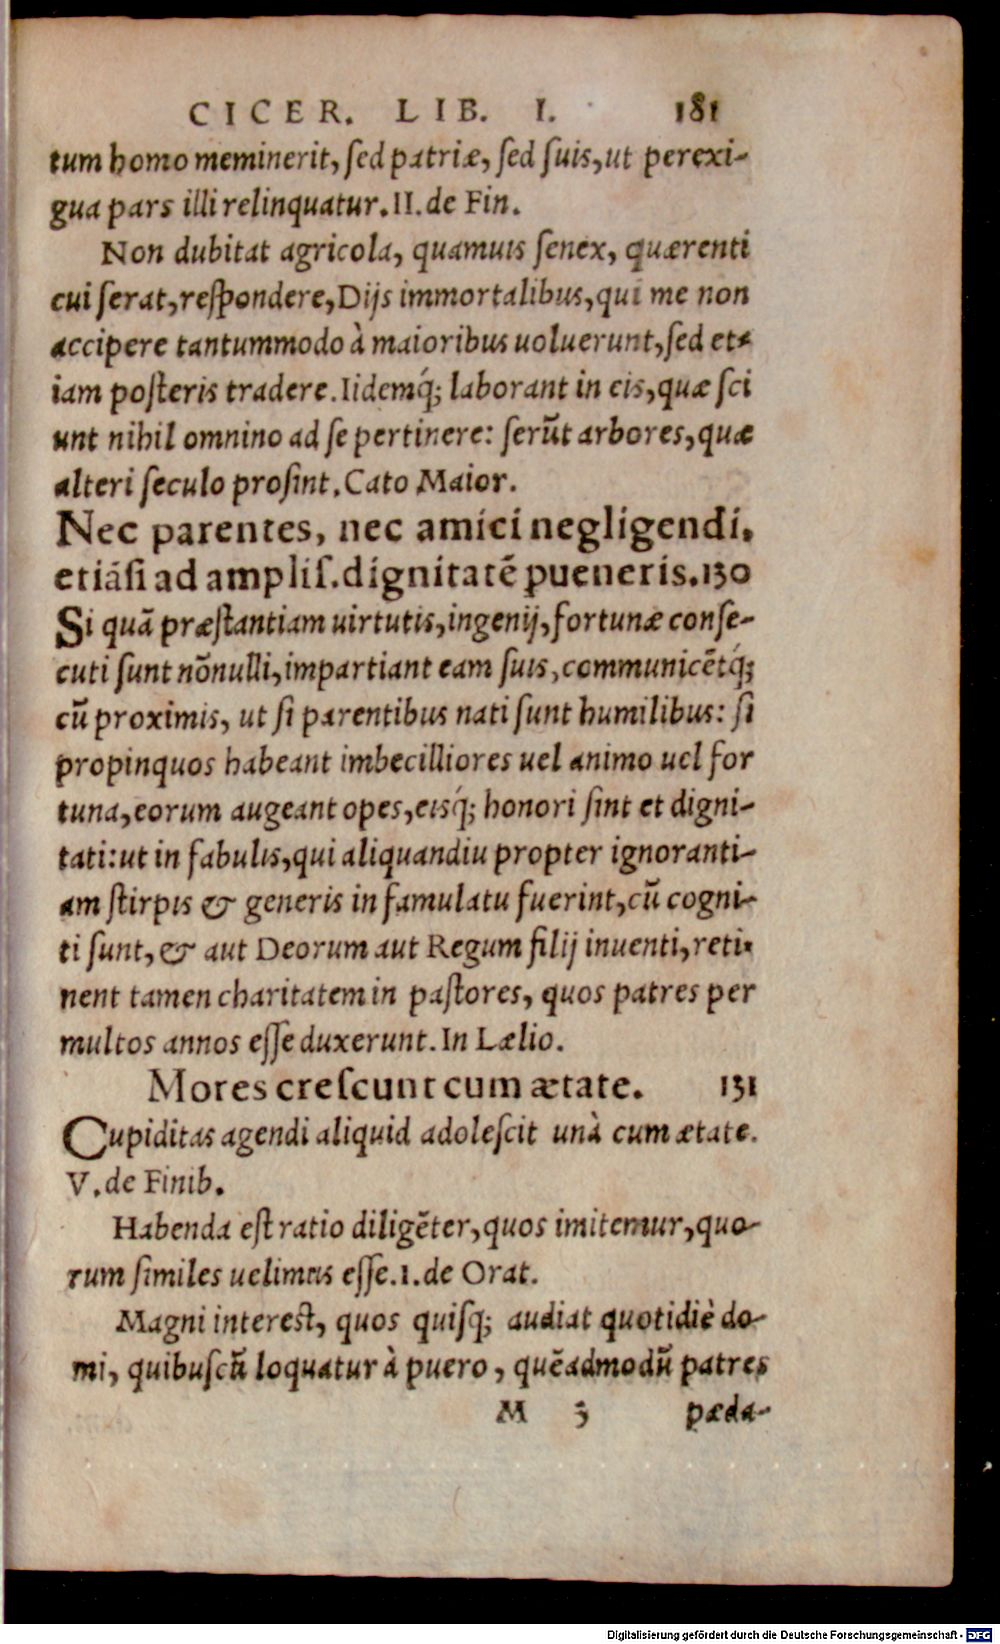 CICER. LIB. I. 181
tum homo meminerit, ſed patriæ, ſed ſuis, ut perexi-
gua pars illi relinquatur. II. de Fin.
Non dubitat agricola, quamuis ſenex, quærenti
cui ſerat, reſpondere, Dijs immortalibus, qui me non
accipere tantummodo à maioribus uoluerunt, ſed et-
iam poſteris tradere. Iidemq́; laborant in eis, quæ ſci
unt nihil omnino ad ſe pertinere: ſerũt arbores, quæ
alteri ſeculo proſint. Cato Maior.
Nec parentes, nec amici negligendi,
etiãſi ad ampliſ. dignitatẽ pueneris. 130
Si quã præſtantiam uirtutis, ingenij, fortunæ conſe-
cuti ſunt nõnulli, impartiant eam ſuis, communicẽtq́;
cũ proximis, ut ſi parentibus nati ſunt humilibus: ſi
propinquos habeant imbecilliores uel animo uel for
tuna, eorum augeant opes, eisq́; honori ſint et digni-
tati: ut in fabulis, qui aliquandiu propter ignoranti-
am ſtirpis & generis in famulatu fuerint, cũ cogni-
ti ſunt, & aut Deorum aut Regum filij inuenti, reti-
nent tamen charitatem in paſtores, quos patres per
multos annos eſſe duxerunt. In Lælio.
Mores creſcunt cum ætate. 131
Cupiditas agendi aliquid adoleſcit unà cum ætate.
V. de Finib.
Habenda eſt ratio diligẽter, quos imitemur, quo-
rum ſimiles uelimus eſſe. 1. de Orat.
Magni intereſt, quos quiſq; audiat quotidiè do-
mi, quibuſcũ loquatur à puero, quẽadmodũ patres
M 3 pæda-
Digitalisierung gefördert durch die Deutsche Forschungsgemeinschaft - DFG